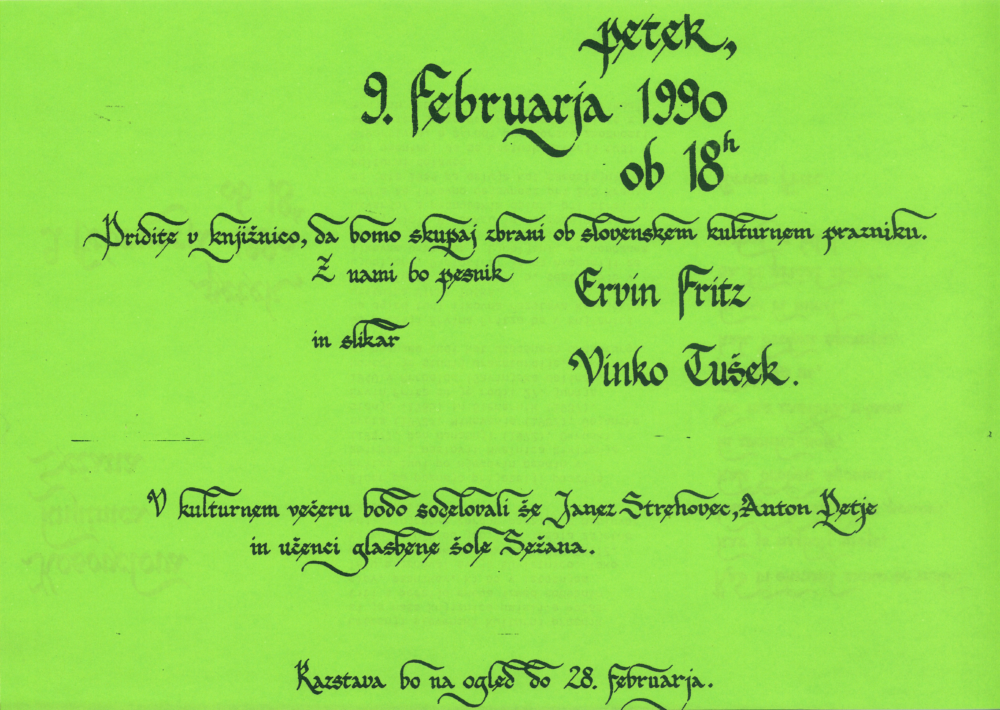 petek,
9. februarja 1990
ob 18h
Pridite v knjižnico, da bomo skupaj zbrani ob slovenskem kulturnem prazniku.
Z nami bo pesnik
Ervin Fritz
in slikar
Vinko Tušek.
V kulturnem večeru bodo sodelovali še Janez Strehovec, Anton Petje
in učenci glasbene šole Sežana.
Razstava bo na ogled do 28. februarja.